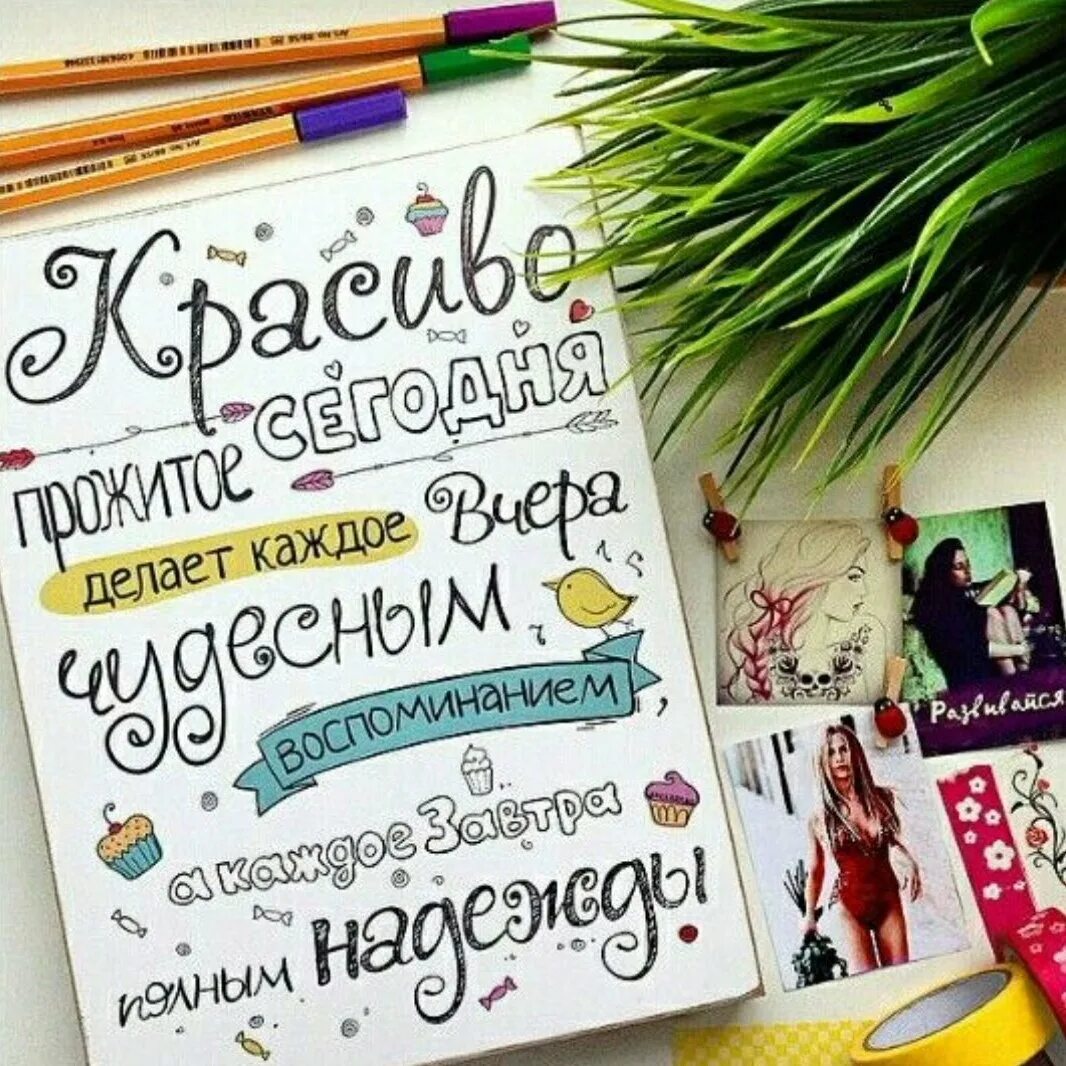 Красиво
прожитое СЕГОДНЯ
делает каждое Вчера
чудесным
воспоминанием
а каждое Завтра
полным надежды
Развивайся